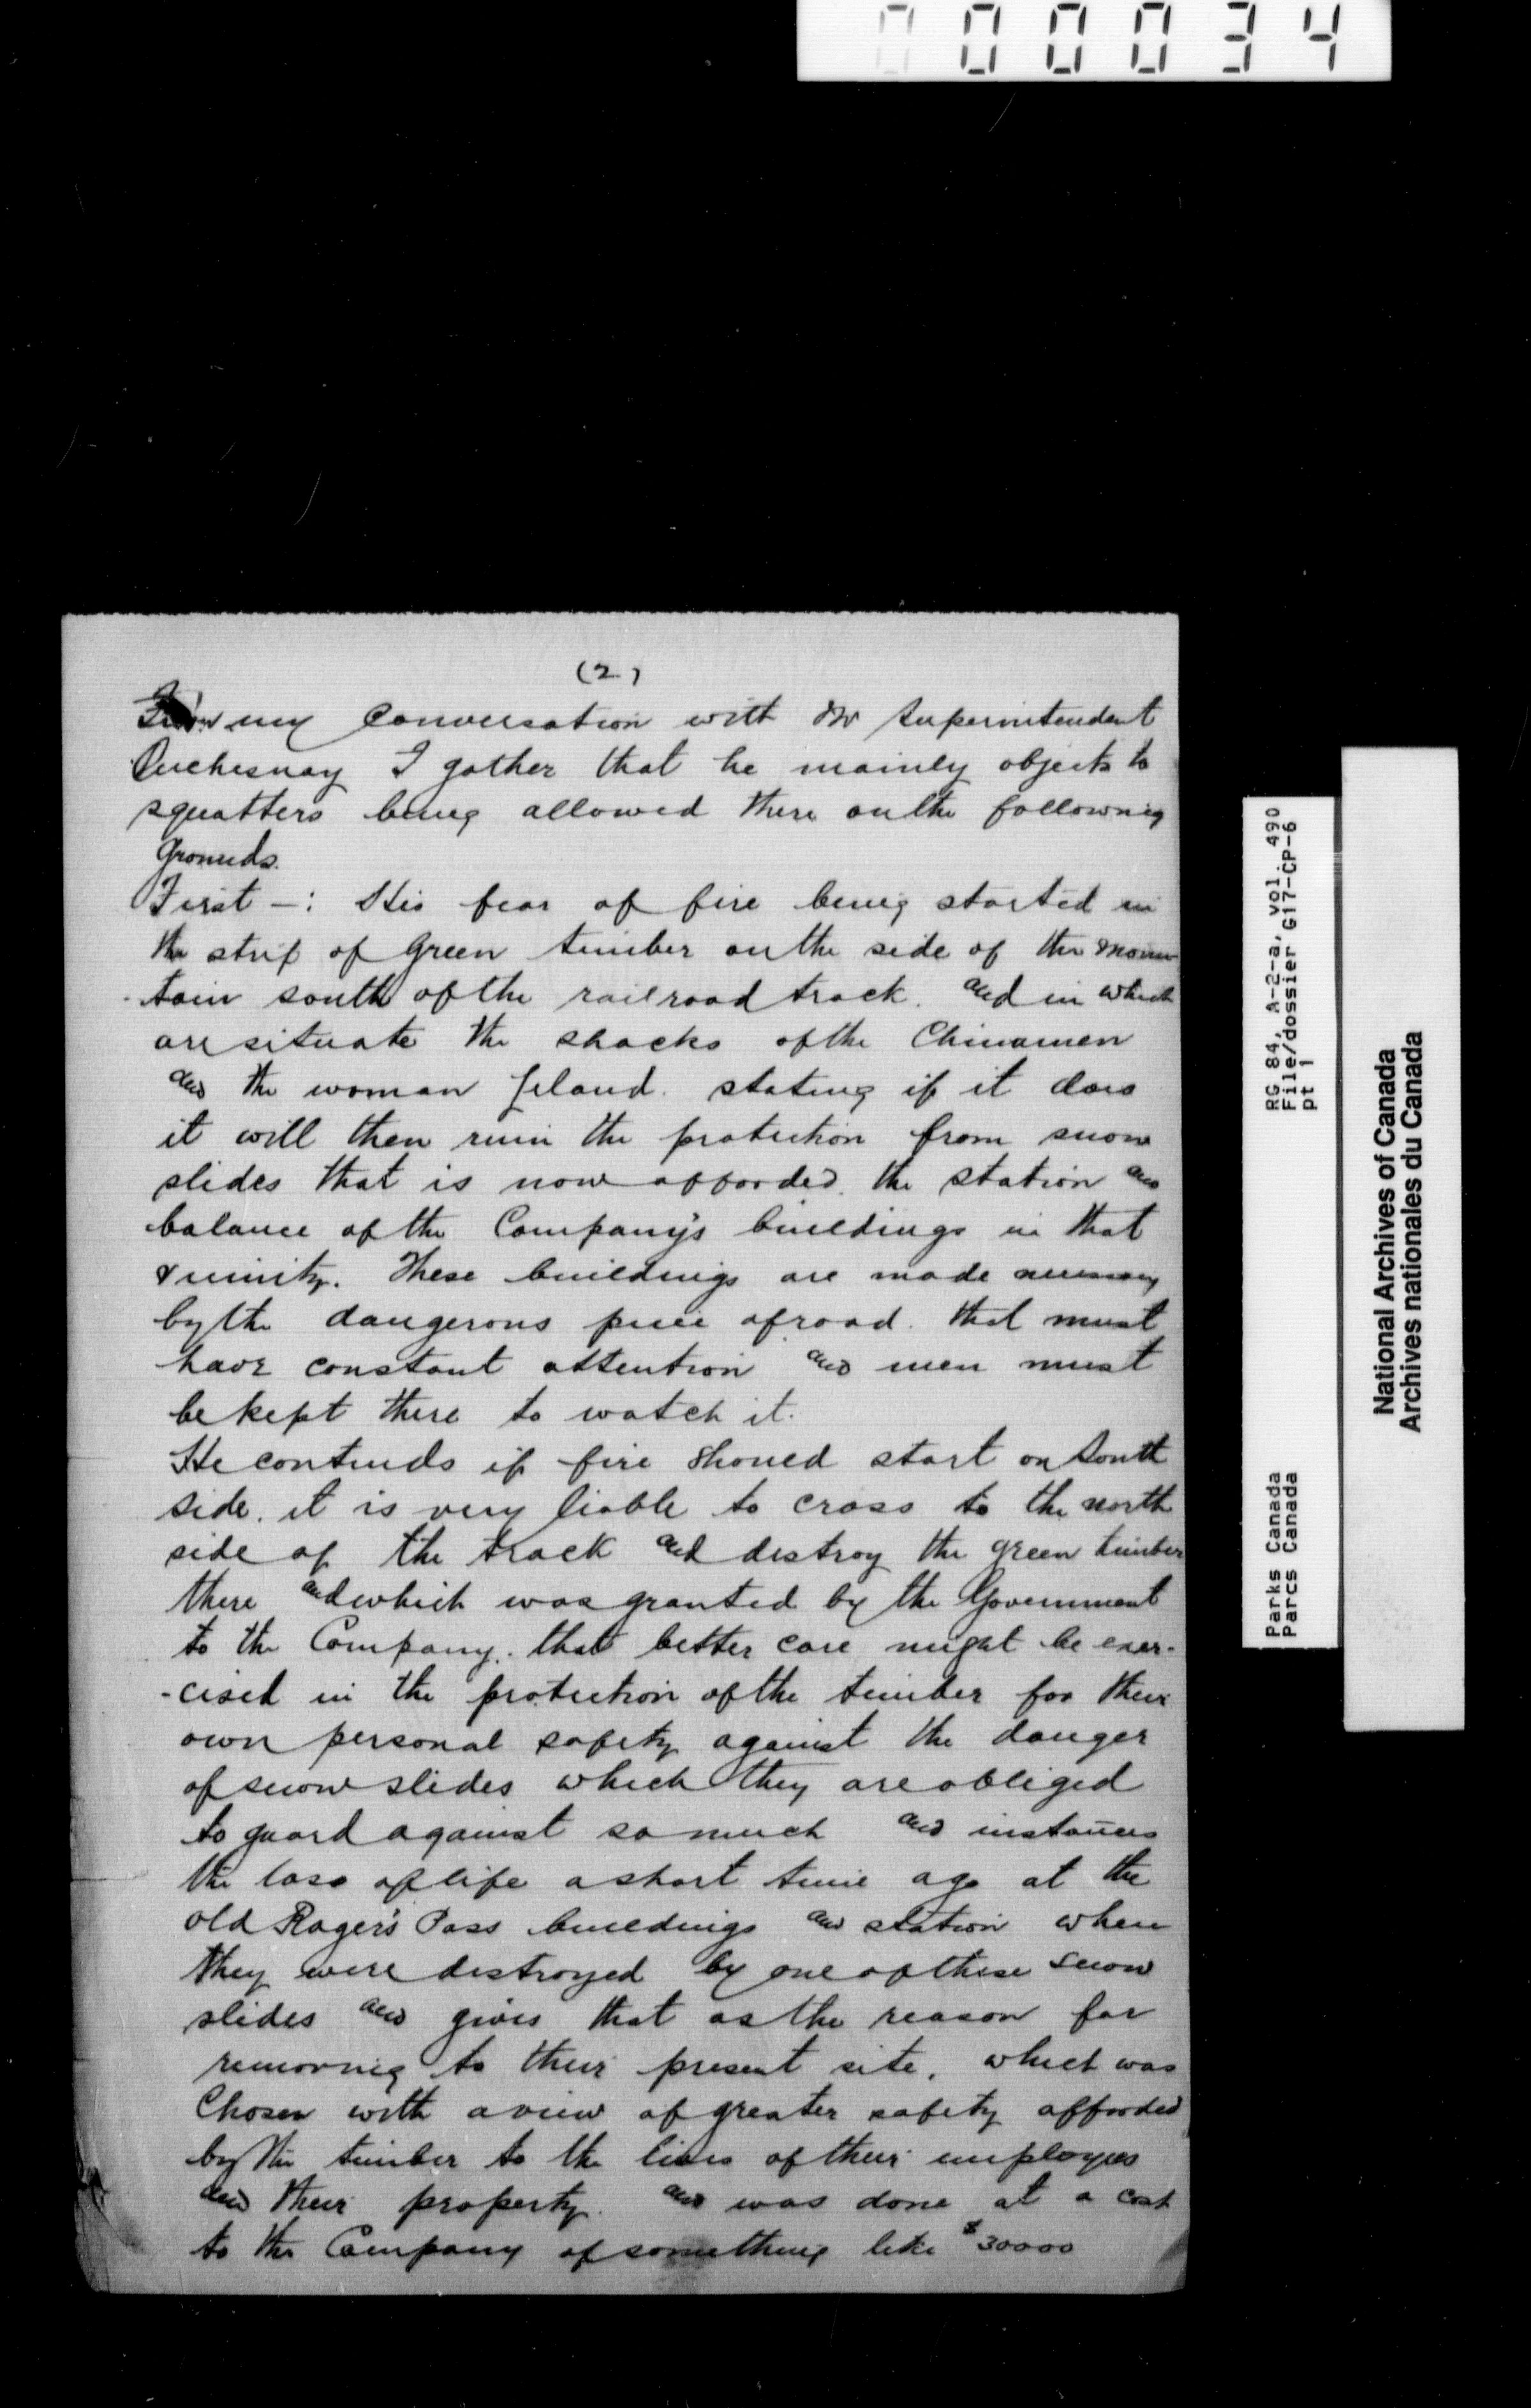 000034
(2)
From my Conversation with Mr Superintendent
Duchesnay I gather that he mainly objects to
squatters being allowed there on the following
Grounds.
First -: His fear of fire being started in
the strip of Green timber on the side of the moun
-tain south of the railroad track. and in which
are situate the shacks of the Chinamen
and the woman stating if it does
it will then ruin the protection from snow
slides that is now afforded. the station and
balance of the Company's buildings in that
vicinity. These buildings are made necessary
by the dangerous piece of road. that must
have constant attention and men must
be kept there to watch it.
He contends if fire should start on South
side. it is very liable to cross to the north
side of the track and destroy the green timber
there and which was granted by the Government
to the Company. that better care might be exer-
-cised in the protection of the timber for their
own personal safety against the danger
of snow slides which they are obliged
to guard against so much and instances
the loss of life a short time ago at the
old Roger's Pass buildings and station when
they were destroyed by one of these snow
slides and gives that as the reason for
removing to their present site, which was
Chosen with a view of greater safety afforded
by the timber to the lives of their employees
and their property. and was done at a cost
to the Company of something like $30000
RG 84, A-2-a, vol. 490
File/dossier G17-CP-6
pt 1
Parks Canada
Parcs Canada
National Archives of Canada
Archives nationales du Canada